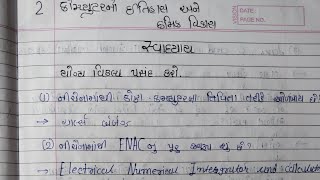 2 કોમ્પ્યુટરનો ઈતિહાસ અને
ક્રમિક વિકાસ
DATE:
PAGE NO.
સ્વાધ્યાય
યોગ્ય વિકલ્પ પસંદ કરો.
(1) નીચેનામાંથી કોણ કમ્પ્યુટરના પિતા તરીકે ઓળખાય છે?
→ ચાર્લ્સ બેબેજ
(2) નીચેનામાંથી ENAC નું પૂરું
→ Electrical Numerical Integrator and calculator